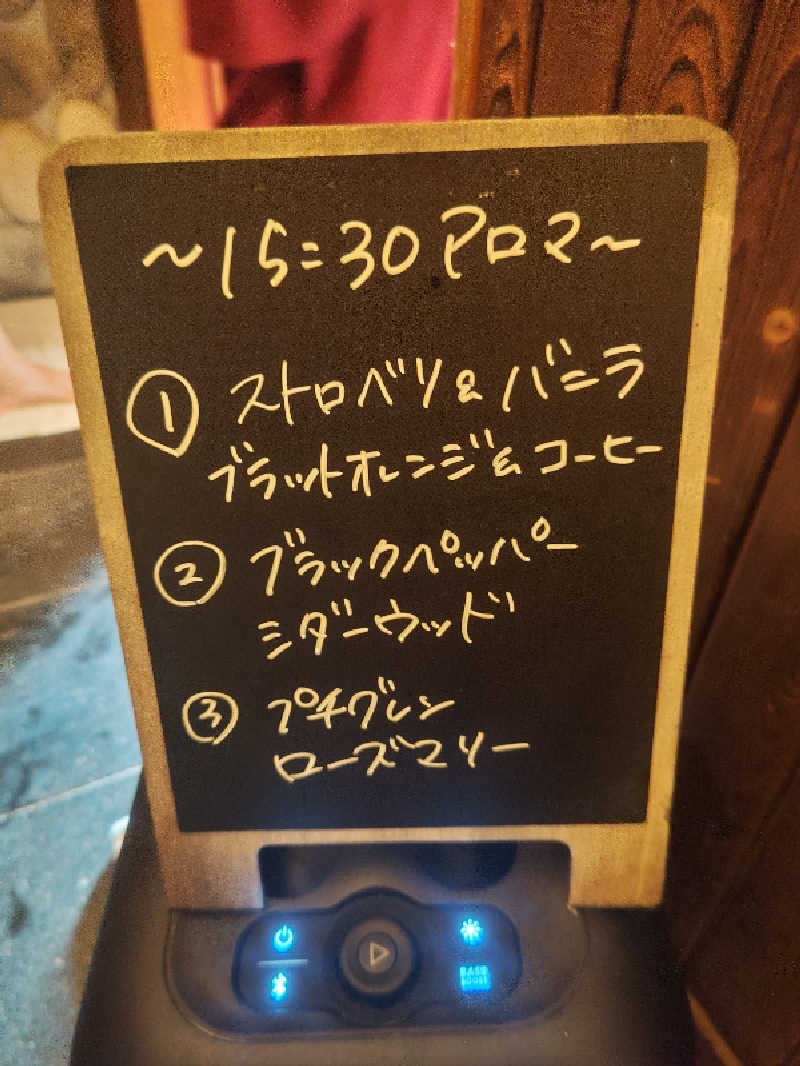 ～15:30 アロマ～
① ストロベリ&バニラ
ブラットオレンジ&コーヒー
② ブラックペッパー
ミダーウッド
③ プチグレン
ローズマリー
BASS
BOOST